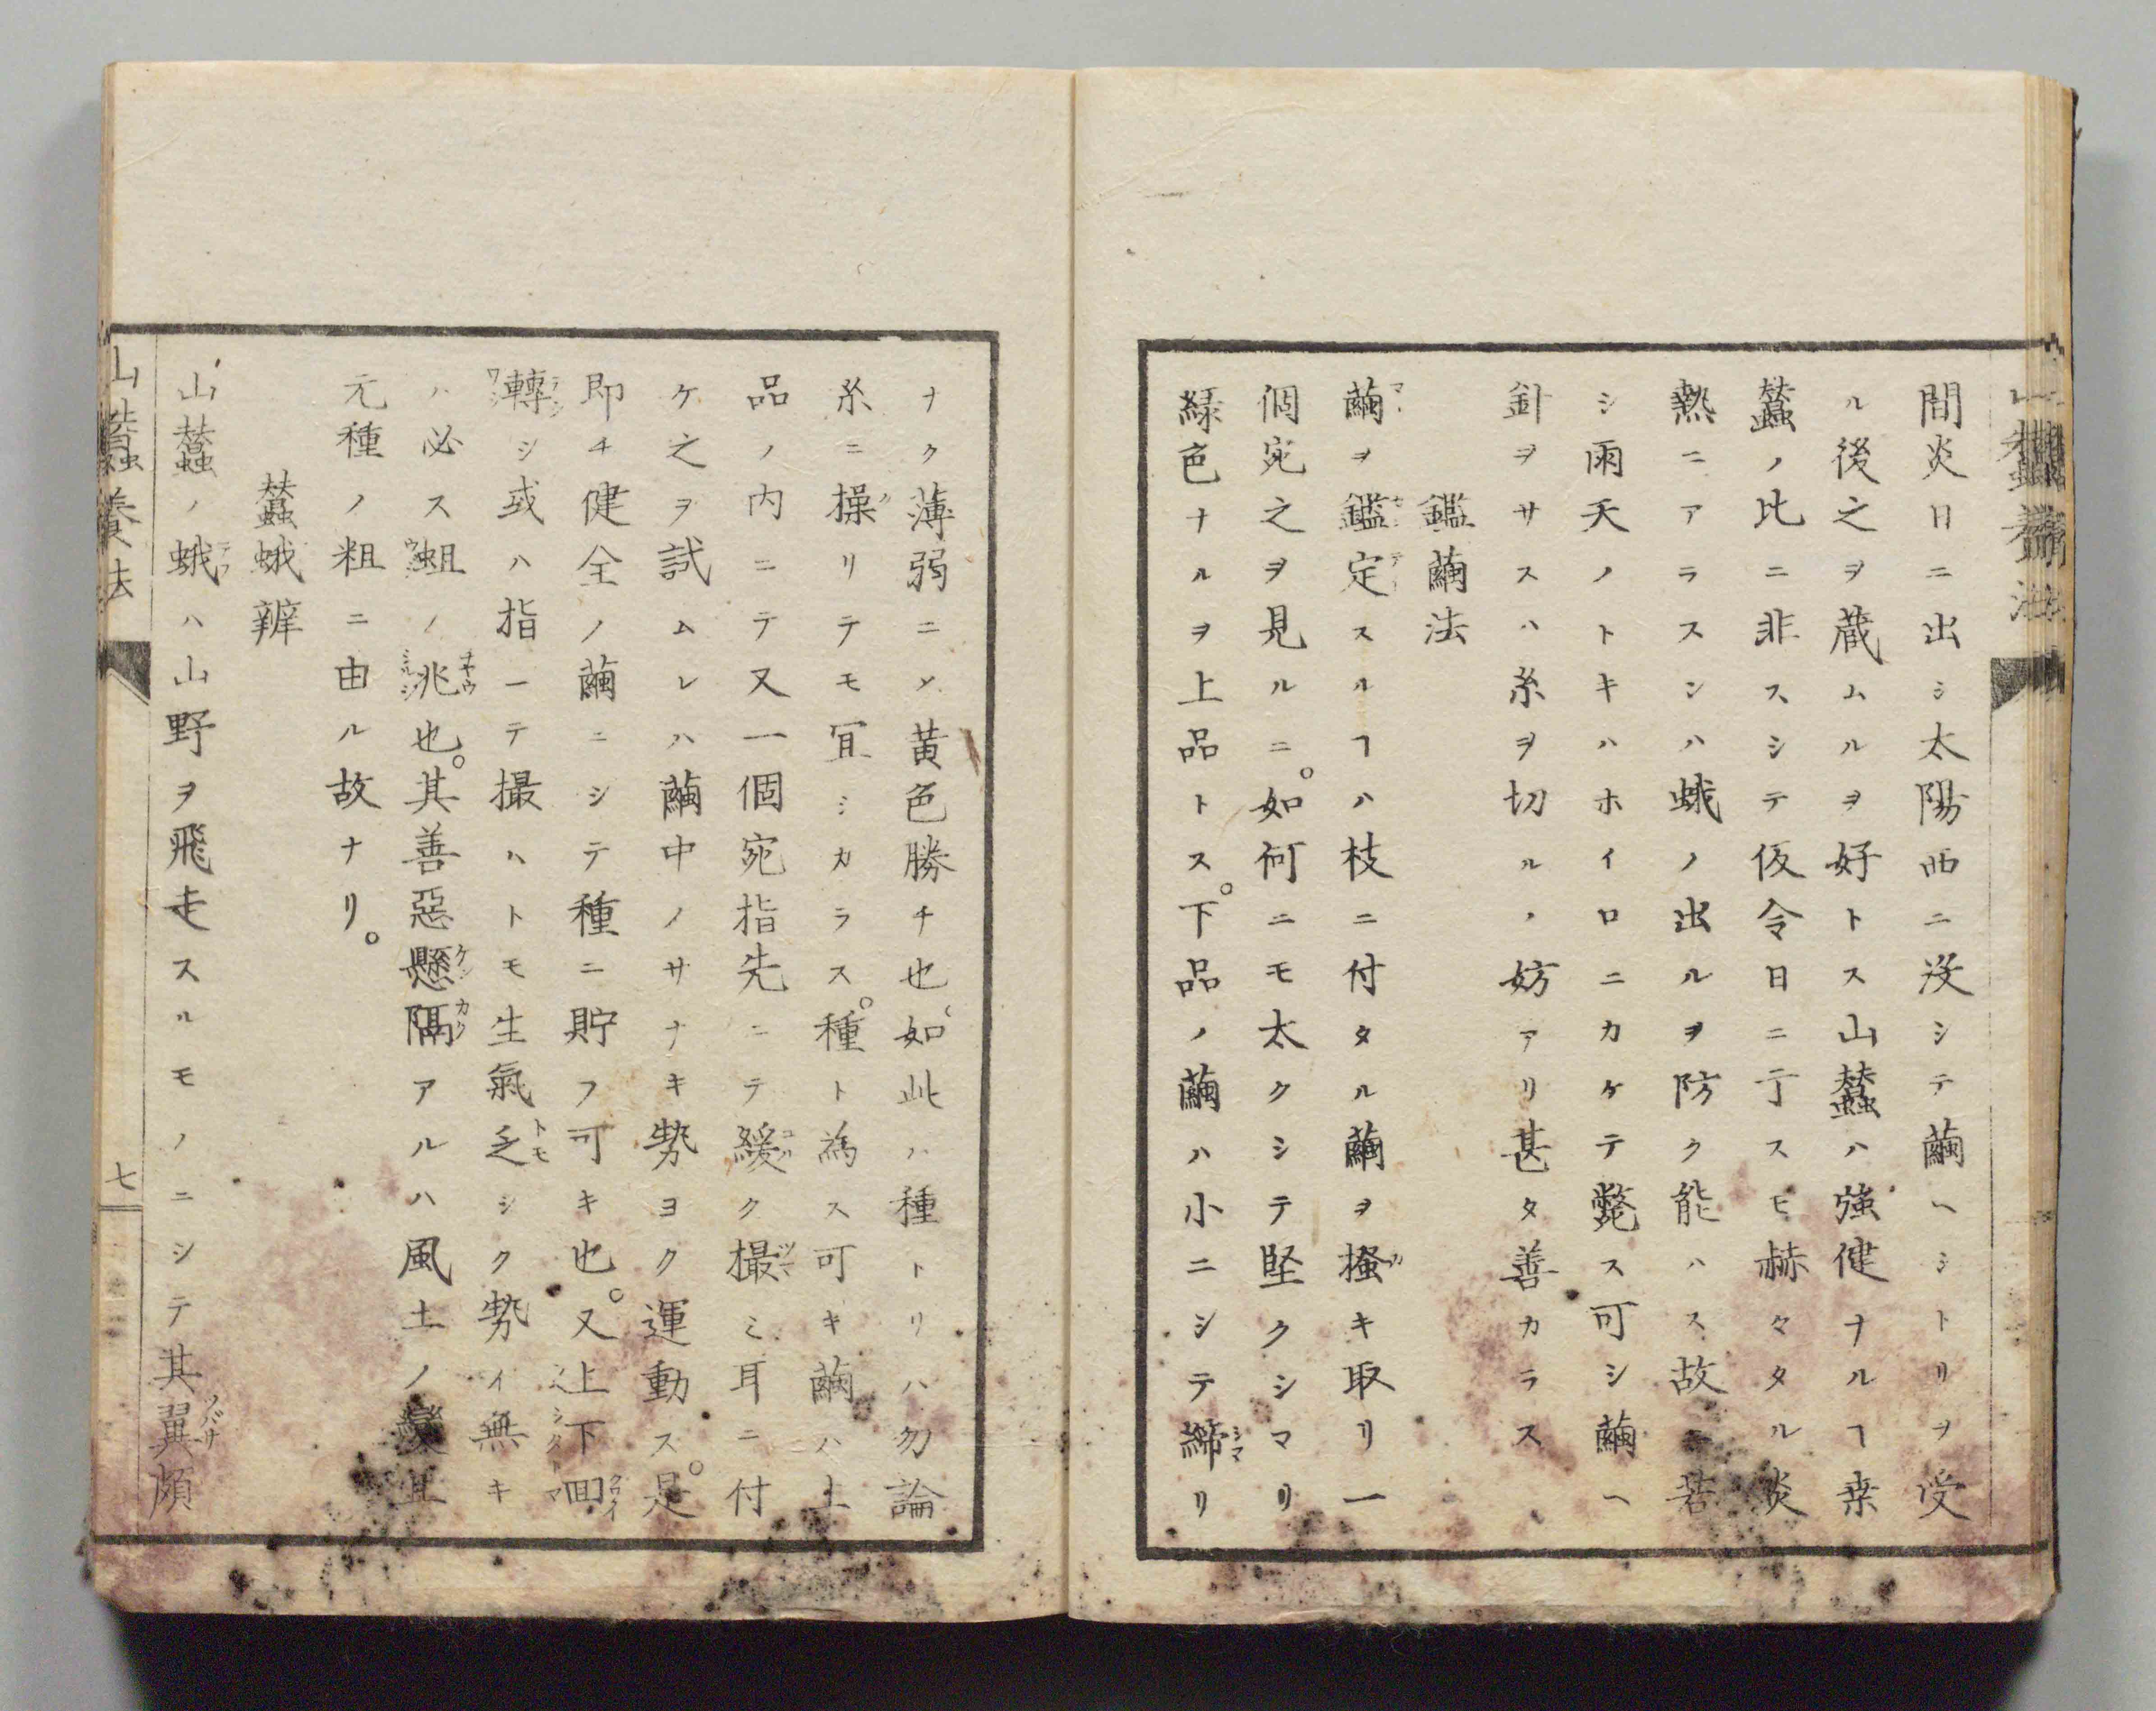 間炎日ニ出シ太陽西ニ没シテ繭ヘシトリヲ受
ル後之ヲ蔵ムルヲ好トス山蠶ハ強健ナルヿ桒
蠶ノ比ニ非スシテ仮令日ニ亍スヒ赫々タル炎
熱ニアラスンハ蛾ノ出ルヲ防ク能ハス故ニ若
シ雨天ノトキハホイロニカケテ斃ス可シ繭ヘ
針ヲサスハ糸ヲ切ルノ妨アリ甚タ善カラス
鑑繭法
繭ヲ鑑定スルヿハ枝ニ付タル繭ヲ搔キ取リ一
個宛之ヲ見ルニ。如何ニモ太クシテ堅クシマリ
緑色ナルヲ上品トス。下品ノ繭ハ小ニシテ締リ
ナク薄弱ニメ黄色勝チ也。如此ハ種トリハ勿論
糸ニ操リテモ冝シカラス。種ト為ス可キ繭ハ上
品ノ内ニテ又一個宛指先ニテ緩ク撮ミ耳ニ付
ケ之ヲ試ムレハ繭中ノサナキ勢ヨク運動ス。是
即チ健全ノ繭ニシテ種ニ貯フ可キ也。又上下回
轉シ或ハ指ニテ撮ハトモ生氣乏シク勢イ無キ
ハ必ス蛆ノ兆也。其善惡懸隔アルハ風土ノ変且
元種ノ粗ニ由ル故ナリ。
蠶蛾辨
山蠶ノ蛾ハ山野ヲ飛走スルモノニシテ其翼頗
山蠶養法
七